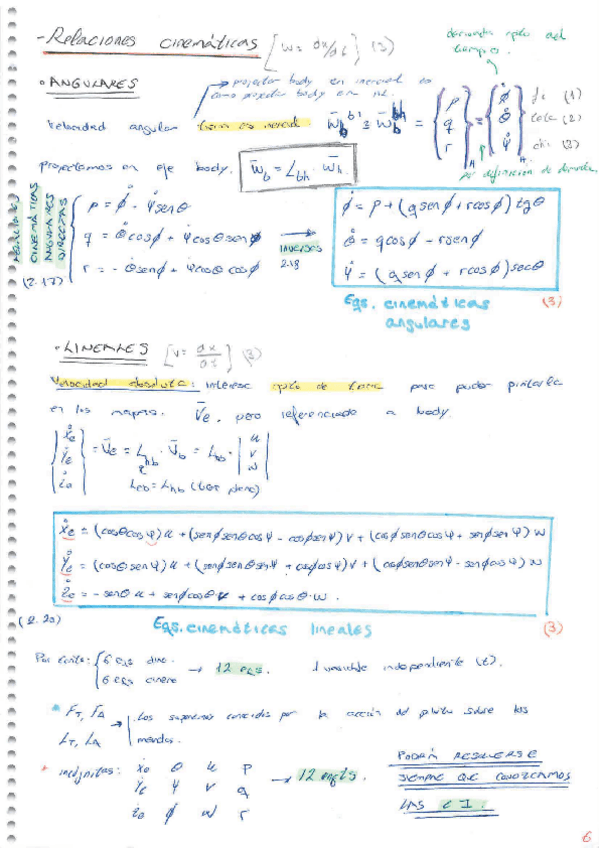 - Relaciones cinemáticas [w = dx/dt] (3)
derivada rpto del tiempo.
• ANGULARES
→ proyectar body en inercial es como proyectar body en
Velocidad angular tierra es inercial ω̄_b^{bi} ≅ ω̄_b^{bh} = {p q r} = {φ̇ θ̇ ψ̇} (1) (2) (3)
por definición de derivada.
proyectamos en eje body. ω̄_b = L_bh · ω̄_h.
RELACIONES CINEMÁTICAS ANGULARES DIRECTAS
p = φ̇ - ψ̇ senθ
q = θ̇ cosφ + ψ̇ cosθ senφ
r = - θ̇ senφ + ψ̇ cosθ cosφ
(2.17)
→ INVERSAS 2.18
φ̇ = p + (q senφ + r cosφ) tgθ
θ̇ = q cosφ - r senφ
ψ̇ = (q senφ + r cosφ) secθ
Eqs. cinemáticas angulares (3)
• LINEALES [v = dx/dt] (3)
Velocidad absoluta: interesa rpto de tierra para poder pintarla
en los mapas. V̄e, pero referenciado a body.
{ẋe ẏe że} = V̄e = L_hb · V̄b = L_eb · |u v w|
Leb = Lhb (tierra plana)
ẋe = (cosθ cosψ) u + (senφ senθ cosψ - cosφ senψ) v + (cosφ senθ cosψ + senφ senψ) w
ẏe = (cosθ senψ) u + (senφ senθ senψ + cosφ cosψ) v + (cosφ senθ senψ - senφ cosψ) w
że = - senθ u + senφ cosθ v + cosφ cosθ · w.
(2.20)
Eqs. cinemáticas lineales (3)
Por tanto: {6 eqs dine. 6 eqs cinem → 12 eqs. 1 variable independiente (t).
* F_T, F_A
L_T, L_A → Los suponemos conocidos por la acción del piloto sobre los mandos.
* incógnitas: ẋe θ u p
ẏe ψ v q → 12 incgts.
że φ w r
PODRÁ RESOLVERSE
SIEMPRE QUE CONOZCAMOS
LAS C I.
6